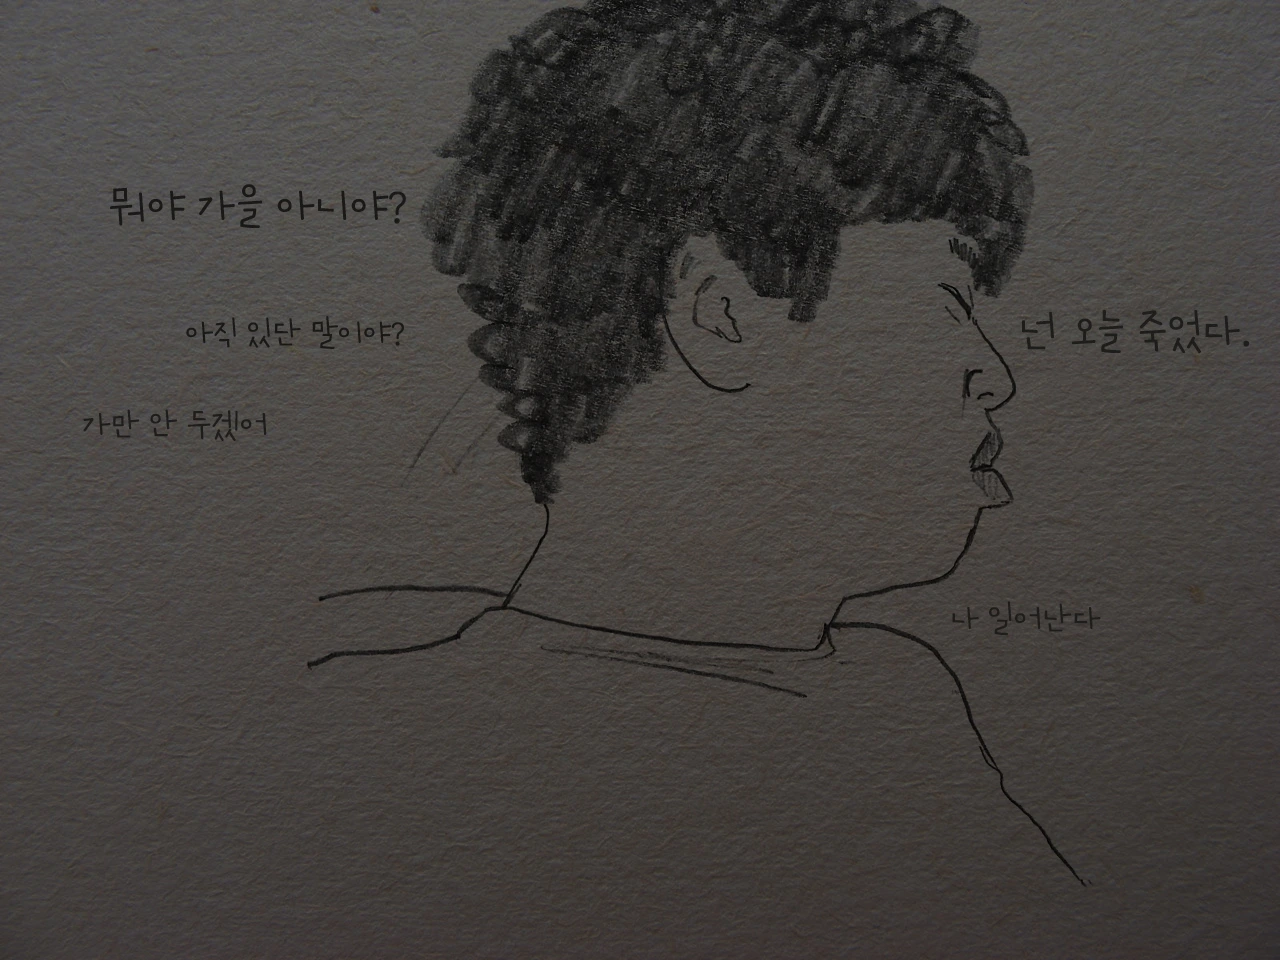 뭐야 가을 아니야?
아직 있단 말이야?
가만 안 두겠어
넌 오늘 죽었다.
나 일어난다